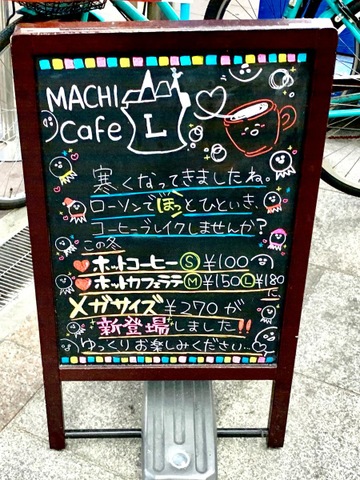 MACHI
Cafe
L
寒くなってきましたね。
ローソンでほっとひといき、
コーヒーブレイクしませんか?
この冬
ホットコーヒーⓈ¥100
ホットカフェラテⓂ¥150Ⓛ¥180
メガサイズ¥270が
新登場しました!!
ゆっくりお楽しみください…